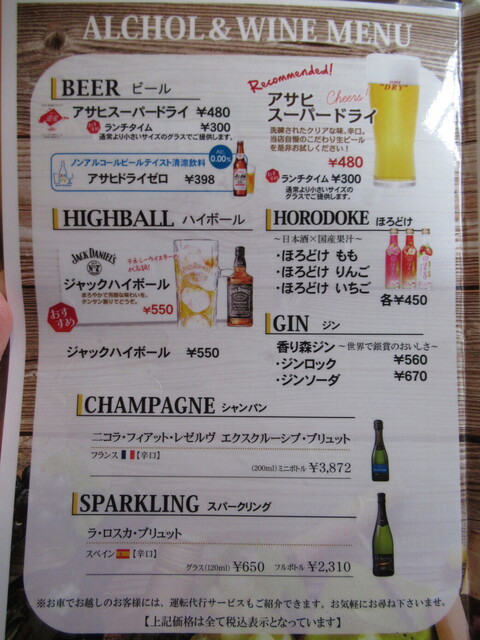 ALCHOL & WINE MENU
BEER ビール
アサヒスーパードライ ¥480
ランチタイム ¥300
通常より小さいサイズのグラスでご提供します。
ノンアルコールビールテイスト清涼飲料
アサヒドライゼロ ¥398
0.00%
Recommended!
Cheers!
アサヒ
スーパードライ
洗練されたクリアな味、辛口。
当店自慢のこだわり生ビール
を是非お試しください!
¥480
ランチタイム ¥300
通常より小さいサイズの
グラスでご提供します。
"DRY"
HIGHBALL ハイボール
JACK DANIEL'S
テネシーウイスキー
ジャックハイボール
まろやかで芳醇な味わいを、
¥550
おすすめ
ジャックハイボール ¥550
HORODOKE ほろどけ
〜日本酒×国産果汁〜
・ほろどけ もも
・ほろどけ りんご
・ほろどけ いちご
各¥450
GIN ジン
香り森ジン 〜世界で銀賞のおいしさ〜
・ジンロック ¥560
・ジンソーダ ¥670
CHAMPAGNE シャンパン
ニコラ・フィアット・レゼルヴ エクスクルーシブ・ブリュット
フランス 【辛口】
(200ml)ミニボトル ¥3,872
SPARKLING スパークリング
ラ・ロスカ・ブリュット
スペイン 【辛口】
グラス(120ml) ¥650 フルボトル ¥2,310
※お車でお越しのお客様には、運転代行サービスもご紹介できます。お気軽にお尋ね下さいませ。
【上記価格は全て税込表示となっています】